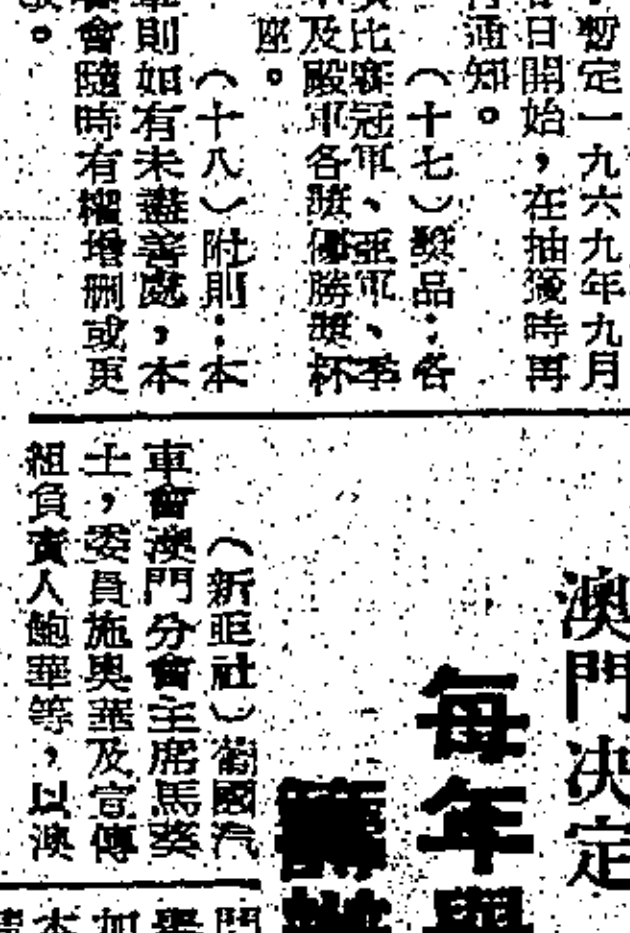 暫定一九六九年九月
日開始，在抽籤時再
通知。
（十七）獎品：各
比賽冠軍、亞軍、季
及殿軍各頒優勝獎杯
座。
（十八）附則：本
則如有未盡善處，本
會隨時有權增删或更
澳門决定
每年舉
籌辦
（新亞社）葡國汽
車會澳門分會主席馬葵
士，委員施奧華及宣傳
組負責人鮑華等，以澳
門
舉
加
本